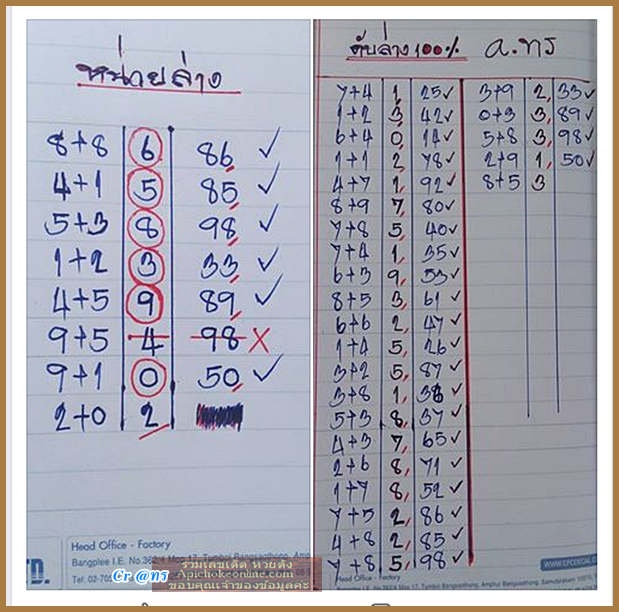 หน่วยล่าง
8+8 6 86 ✓
4+1 5 85 ✓
5+3 8 98 ✓
1+2 3 33 ✓
4+5 9 89 ✓
9+5 4 98 ✗
9+1 0 50 ✓
2+0 2
Head Office - Factory
Bangplee I.E. No.36
TD.
Tel. 02-70
Cr @ทร
รวมเลขเด็ด หวยดัง
Apichokeonline.com
ขอบคุณเจ้าของข้อมูลค่ะ
ดับล่าง 100% อ.ทร
7+4 1, 25 ✓
1+2 3, 42 ✓
6+4 0, 14 ✓
1+1 2, 78 ✓
4+7 1, 92 ✓
8+9 7, 80 ✓
7+8 5, 40 ✓
7+4 1, 35 ✓
6+3 9, 53 ✓
8+5 3, 61 ✓
6+6 2, 47 ✓
1+4 5, 26 ✓
3+2 5, 87 ✓
3+8 1, 38 ✓
5+3 8, 37 ✓
4+3 7, 65 ✓
2+6 8, 71 ✓
1+7 8, 52 ✓
7+5 2, 86 ✓
4+8 2, 85 ✓
7+8 5, 98 ✓
3+9 2, 33 ✓
0+3 3, 89 ✓
5+8 3, 98 ✓
2+9 1, 50 ✓
8+5 3
Head Office - Factory